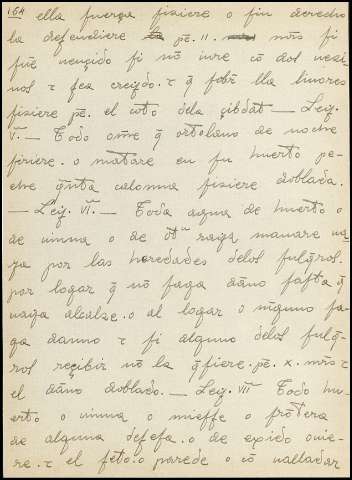 164
ella fuerça fiziere o sin derecho
la defendiere pē. II. mr̄s si
fuē uencido si nō iure cō dos uezi
nos τ sea creydo. τ q̄ sobr̄ lla lauores
fiziere pē. el coto dela çibdat — Ley.
V. — Todo om̄e q̄ ortolano de noche
firiere. o matare en su huerto pe-
che q̄nta calonna fiziere doblada.
— Ley. VI. — Toda agua de huerto o
de uinna o de otra raya manare ua
ya por las heredades delos sulq̄ros.
por logar q̄ nō faga dāno fasta q̄
uaya alcalze. o al logar o ninguno fa-
ga danno τ si alguno delos sulq̄-
ros recibir nō la q̄siere. pē. X. mr̄s τ
el dāno doblado. — Ley. VII Todo hu-
erto o uinna o miesse o frōtera
de alguna defesa. o de exido ouie-
re. τ el seto. o parede o cō ualladar